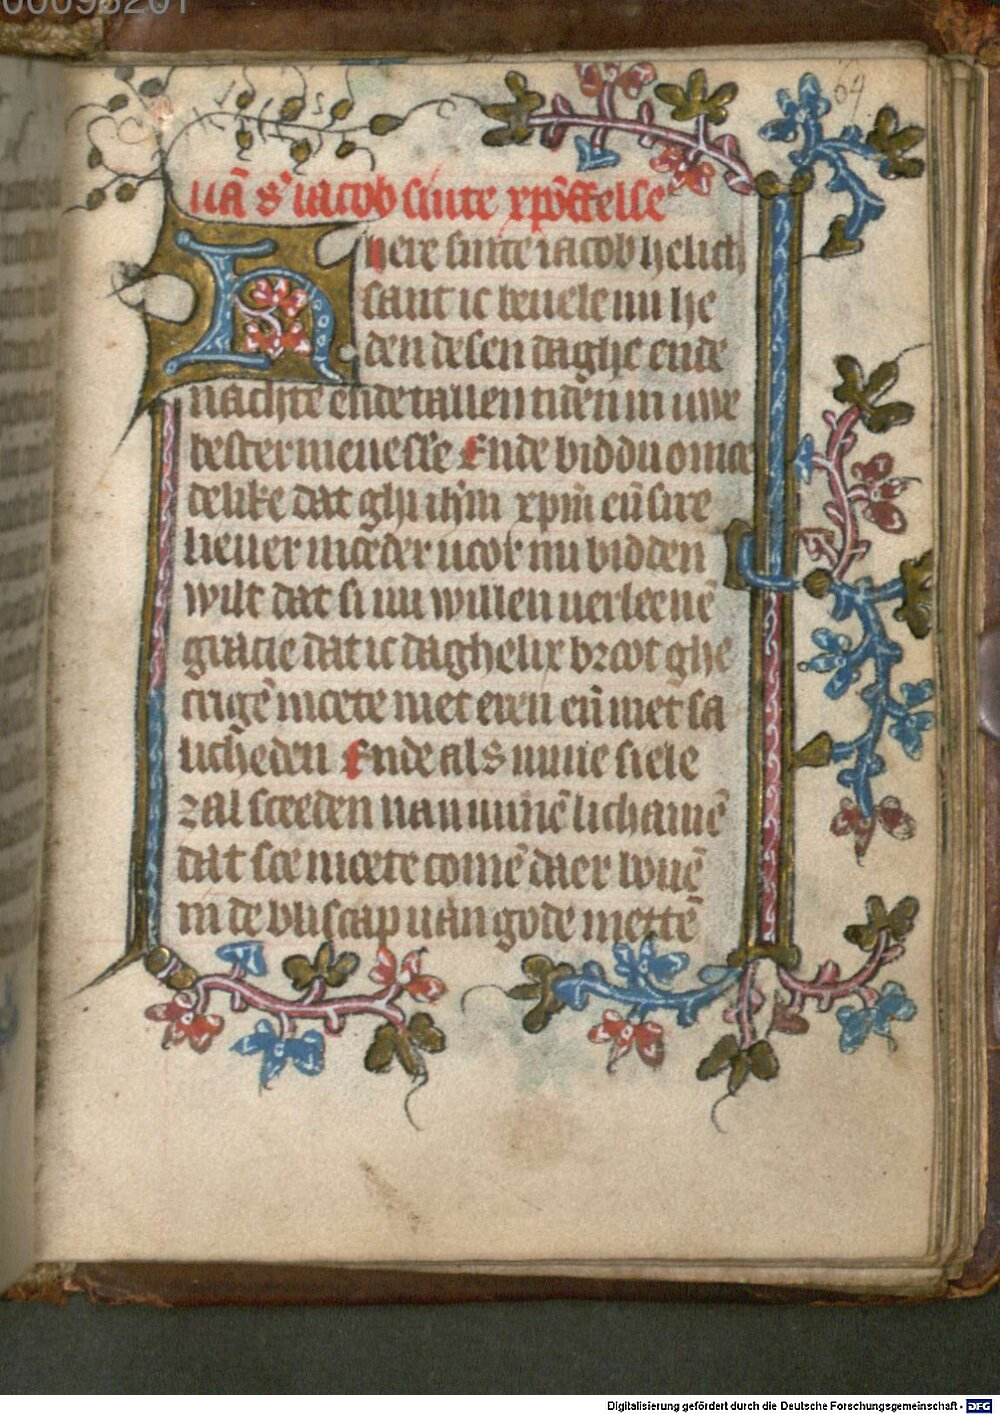 00093201
69
uā s' iacob sinte xpōffelse
Here sinte iacob helich
sant ic beuele nu he
den desen daghe ende
nachte ende tallen tidēn in uwe
bescermenesse Ende biddu omoe
delike dat ghi ihm̄ xpm̄ eñ sire
lieuer moeder uoor mi bidden
wilt dat si mi willen uerleenē
gracie dat ic daghelix broot ghe
crigē moete met eren eñ met sa
licheden Ende als mine siele
zal sceeden uan minē lichamē
dat soe moete comē daer bouē
in de bliscap uan gode mettē
Digitalisierung gefördert durch die Deutsche Forschungsgemeinschaft - DFG